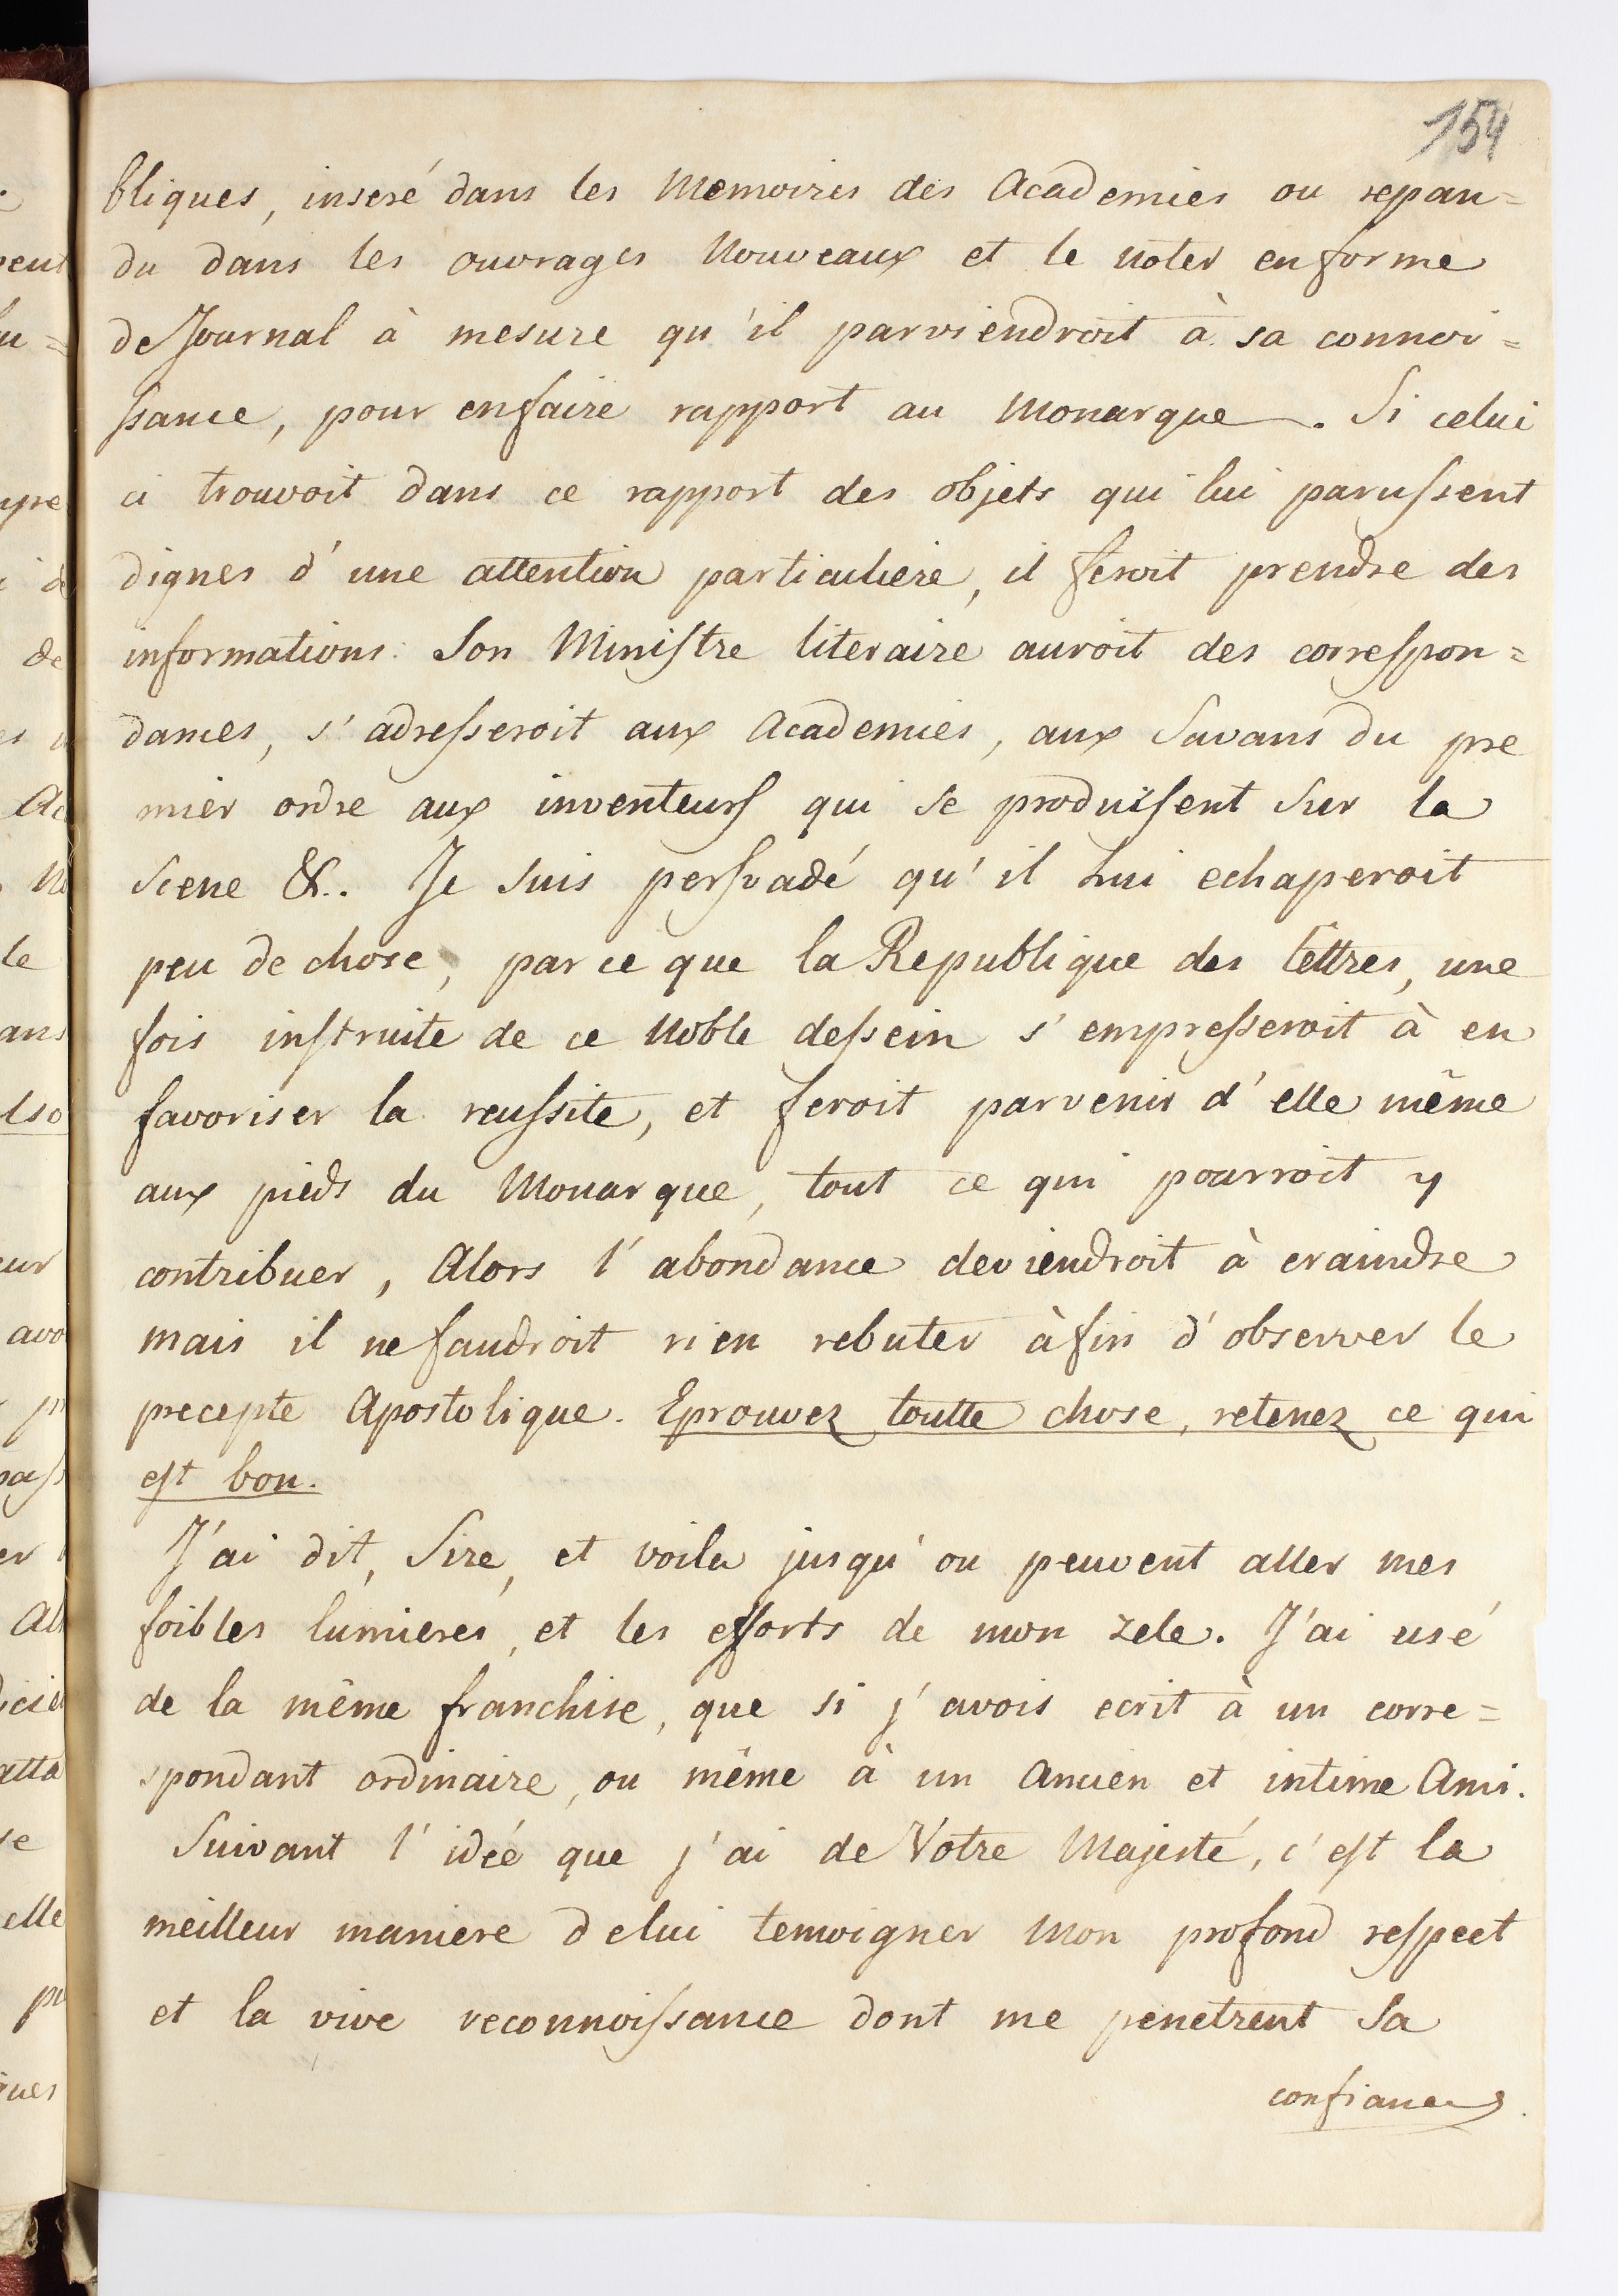 154
bliques, inseré dans les Memoires des Academies ou repan=
du dans les ouvrages Nouveaux et le noter en forme
de Journal à mesure qu'il parviendroit à sa connoi=
ſsance, pour en faire rapport au Monarque. Si celui
ci trouvoit dans ce rapport des objets qui lui paruſsent
dignes d'une attention particuliere, il feroit prendre des
informations. Son Miniſtre literaire auroit des correſpon=
dances, s'adreſseroit aux Academies, aux Savans du pre
mier ordre aux inventeurſ qui se produiſent sur la
Scene &. Je suis perſuadé qu'il Lui echaperoit
peu de chose, par ce que la Republique des lettres, une
fois inſtruite de ce Noble deſsein s'empreſseroit à en
favoriser la reuſsite, et feroit parvenir d'elle même
aux pieds du Monarque, tout ce qui pourroit y
contribuer, Alors l'abondance deviendroit à craindre
mais il ne faudroit rien rebuter àfin d'observer le
precepte Apostolique. Eprouvez toutte chose, retenez ce qui
eſt bon.
J'ai dit, Sire, et voila jusqu'ou peuvent aller mes
foibles lumieres, et les efforts de mon zele. J'ai usé
de la même franchise, que si j'avois ecrit à un corre=
spondant ordinaire, ou même à un Ancien et intime Ami.
Suivant l'idée que j'ai de Votre Majesté, c'eſt la
meilleur maniere de lui temoigner mon profond reſpect
et la vive reconnoiſsance dont me penetrent Sa
confiance